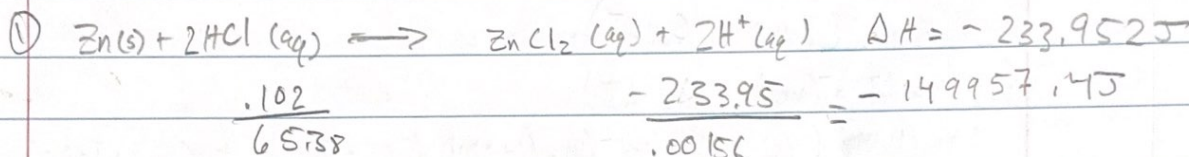 ① Zn(s) + 2HCl (aq) ⟶ ZnCl₂ (aq) + 2H⁺(aq) ΔH = - 233.952J
.102 / 65.38 - 233.95 / .00156 = - 149957.4J